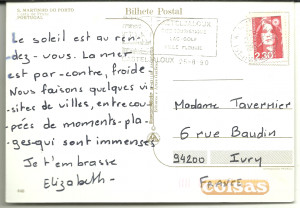 S. MARTINHO DO PORTO
PORTUGAL
Bilhete Postal
Le soleil est au ren-
dez-vous. La mer
est par-contre, froide.
Nous faisons quelques vi-
sites de villes, entrecou-
pées de moments-pla-
ges qui sont immenses
Je t'embrasse
Elizabeth-
CASTELJALOUX
SON GOLF
2.30
Madame Tavernier
6 rue Baudin
94200 Ivry
FRANCE
coisas